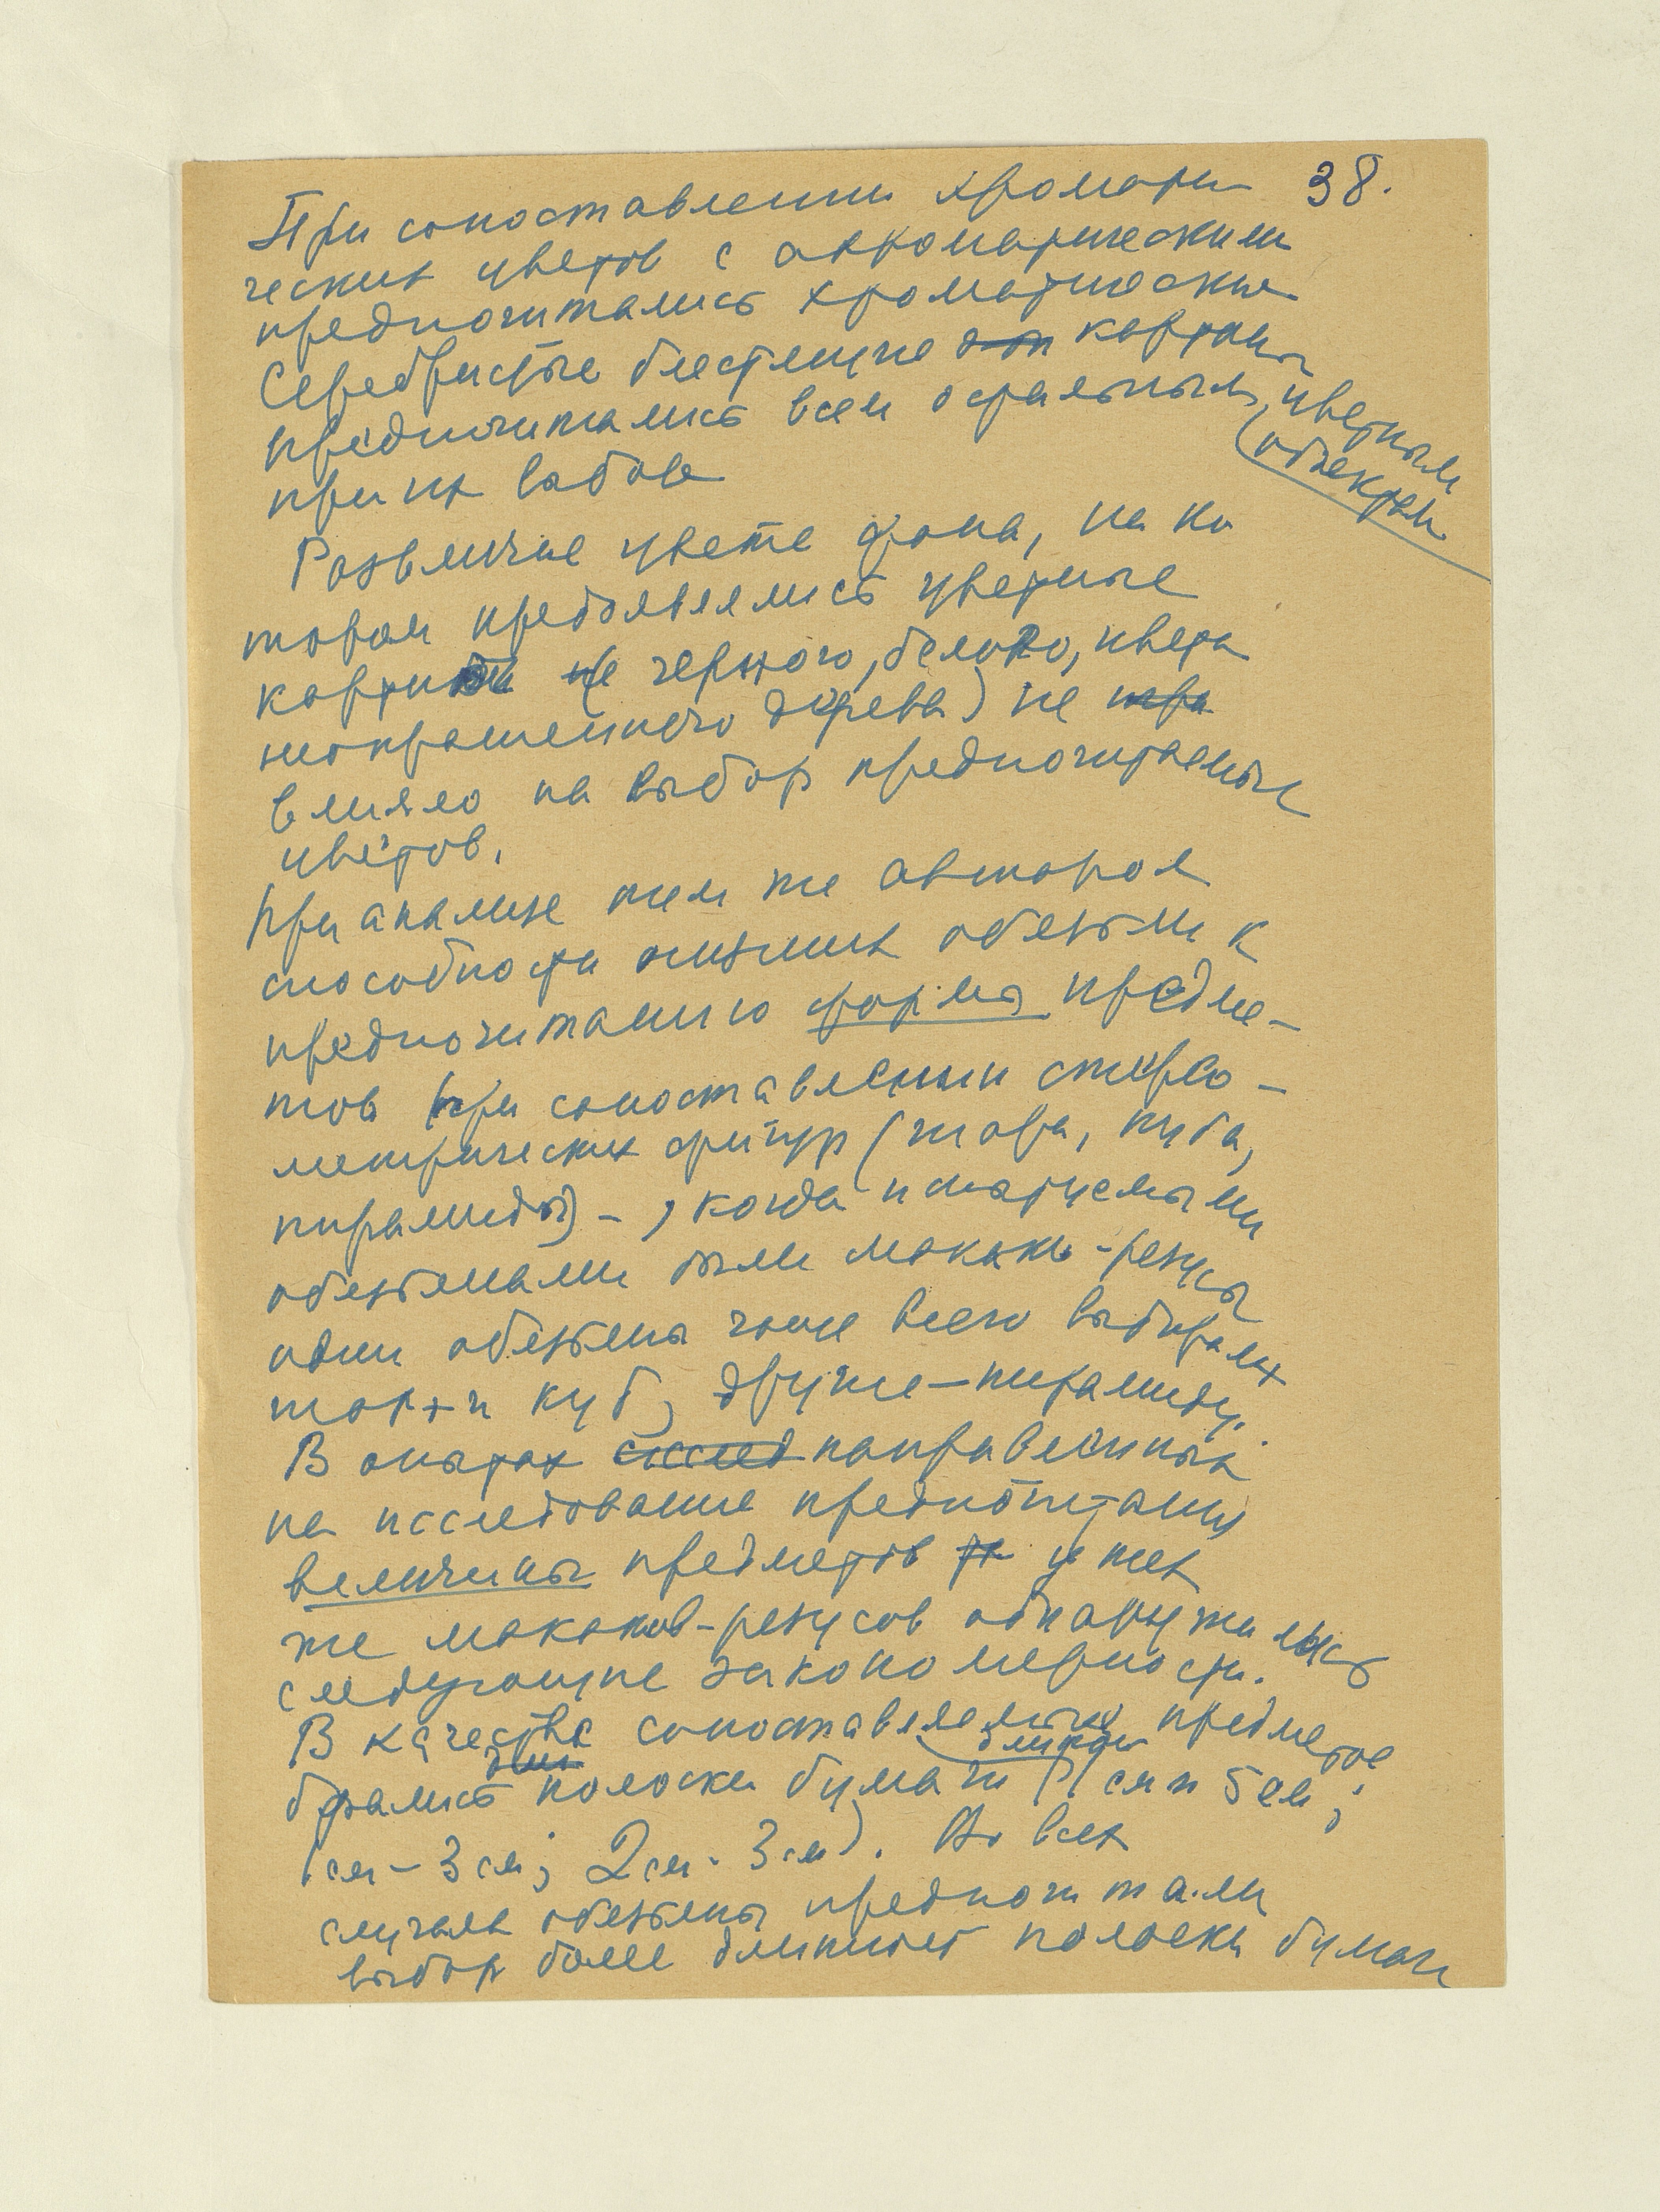 38.
При сопоставлении хромати-
ческих цветов с ахроматическими
предпочитались хроматические
Серебристые блестящие картоны
предпочитались всем остальным цветным
(объектам
при их выборе
Различие цвета фона, на ко
тором предъявлялись цветные
картоны (черного, белого, цвета
неокрашенного дерева) не
влияло на выбор предпочитаемых
цветов.
При анализе тем же автором
способности низших обезьян к
предпочитанию формы предме-
тов при сопоставлении стерео-
метрических фигур (шара, куба,
пирамиды) -, когда испытуемыми
обезьянами были макаки-резусы
одни обезьяны чаще всего выбирали
шар и куб, другие - пирамиду.
В опытах направленных
на исследование предпочитания
величины предметов у тех
же макаков-резусов обнаружились
следующие закономерности.
В качестве сопоставляемых предметов
длиной
брались полоски бумаги (1 см и 5 см;
1 см - 3 см; 2 см - 3 см). Во всех
случаях обезьяны предпочитали
выбор более длинной полоски бумаги